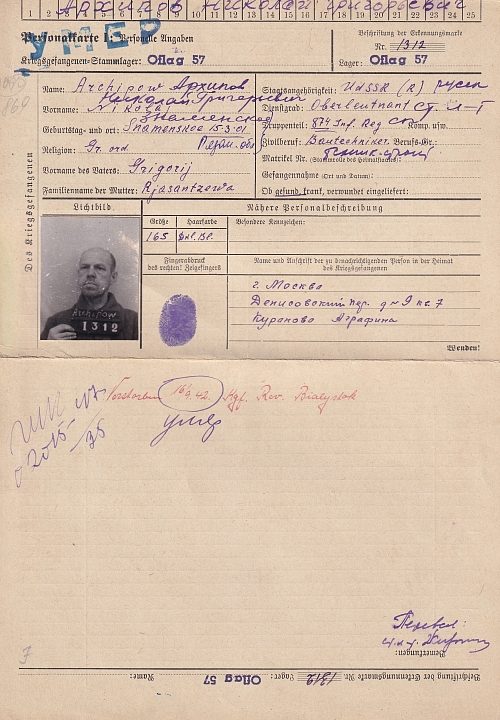 Архипов Николай Григорьевич
1 2 3 4 5 6 7 8 9 10 11 12 13 14 15 16 17 18 19 20 21 22 23 24 25
УМЕР
Personalkarte I: Personelle Angaben
Kriegsgefangenen-Stammlager: Oflag 57
Beschriftung der Erkennungsmarke
Nr. 1312
Lager: Oflag 57
Des Kriegsgefangenen
Name: Archipow Архипов
Николай Григорьевич
Vorname: Nikolai
Знаменское
Geburtstag und -ort: Snamenskoe 15.3.01
Religion: Gr. ord
Vorname des Vaters: Grigorij
Familienname der Mutter: Rjasantzewa
Staatsangehörigkeit: UdSSR (R) русск
Dienstgrad: Oberleutnant ст. л-т
Truppenteil: 874 Inf. Reg Komp. usw.
Zivilberuf: Bautechniker Berufs-Gr.:
Matrikel Nr. (Stammrolle des Heimatstaates):
Gefangennahme (Ort und Datum):
Ob gesund, krank, verwundet eingeliefert:
Lichtbild
Nähere Personalbeschreibung
Größe
Haarfarbe
Besondere Kennzeichen:
165
Archipow
1312
Fingerabdruck
des rechten! Zeigefingers
Name und Anschrift der zu benachrichtigenden Person in der Heimat
des Kriegsgefangenen
г. Москва
Денисовский пер. д-9 кв. 7
Куранова Аграфина
Wenden!
Verstorben 16/9.42. Kgf. Rev. Bialystok
умер
Перевел:
Bemerkungen:
Beschriftung der Erkennungsmarke Nr. 1312 Lager: Oflag 57 Name: